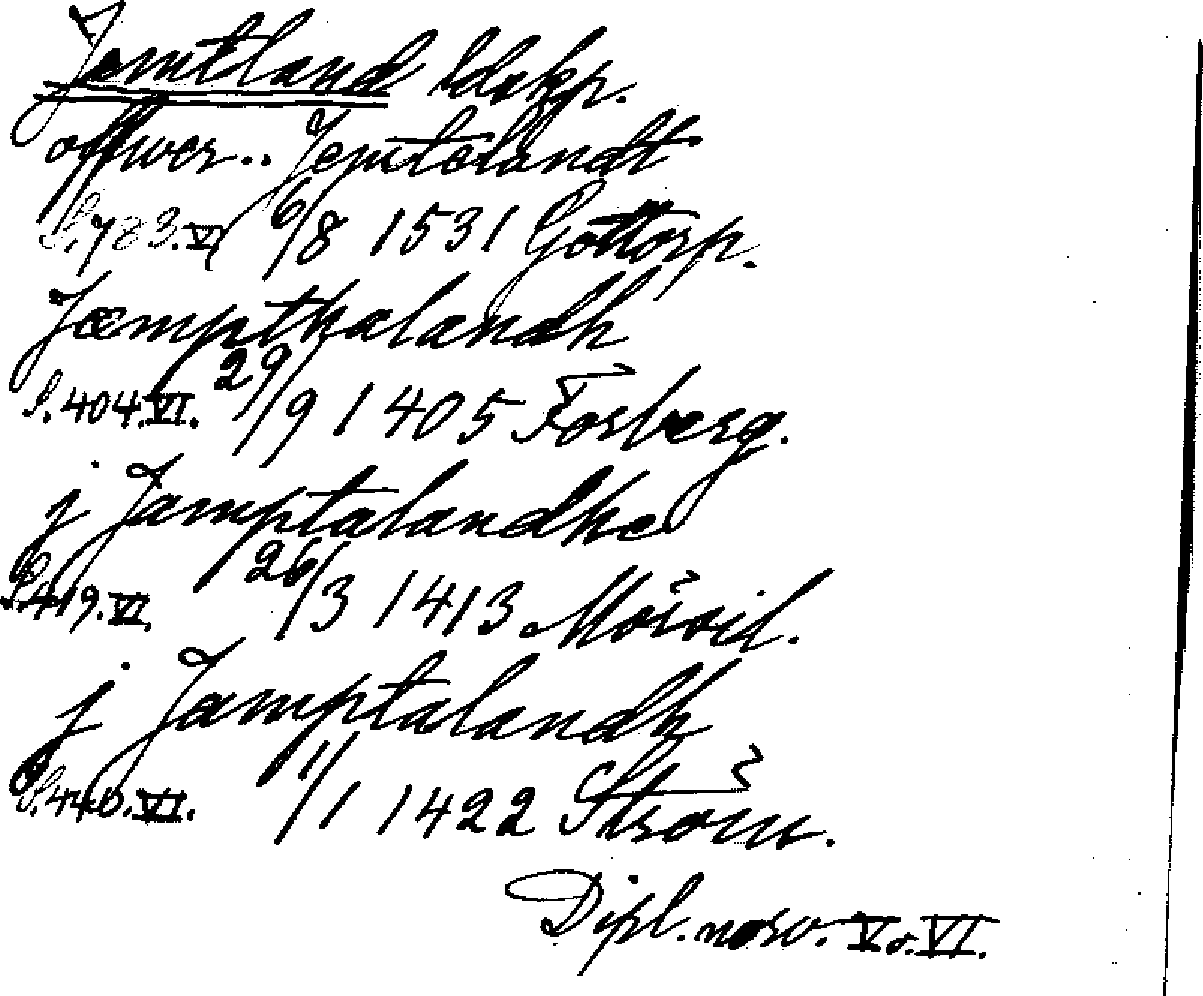 Jemtland ldskp.
offwer.. Jemtelandt
S. 783. VI 6/8 1531 Gottorp.
Jæmpthalandh
S. 404. VI. 29/9 1405 Forberg.
j Jamptalandhe
S. 419. VI. 26/3 1413 Mörsil.
j Jamptalandh
S. 440. VI. 11/1 1422 Ström.
Dipl. norv. V o. VI.